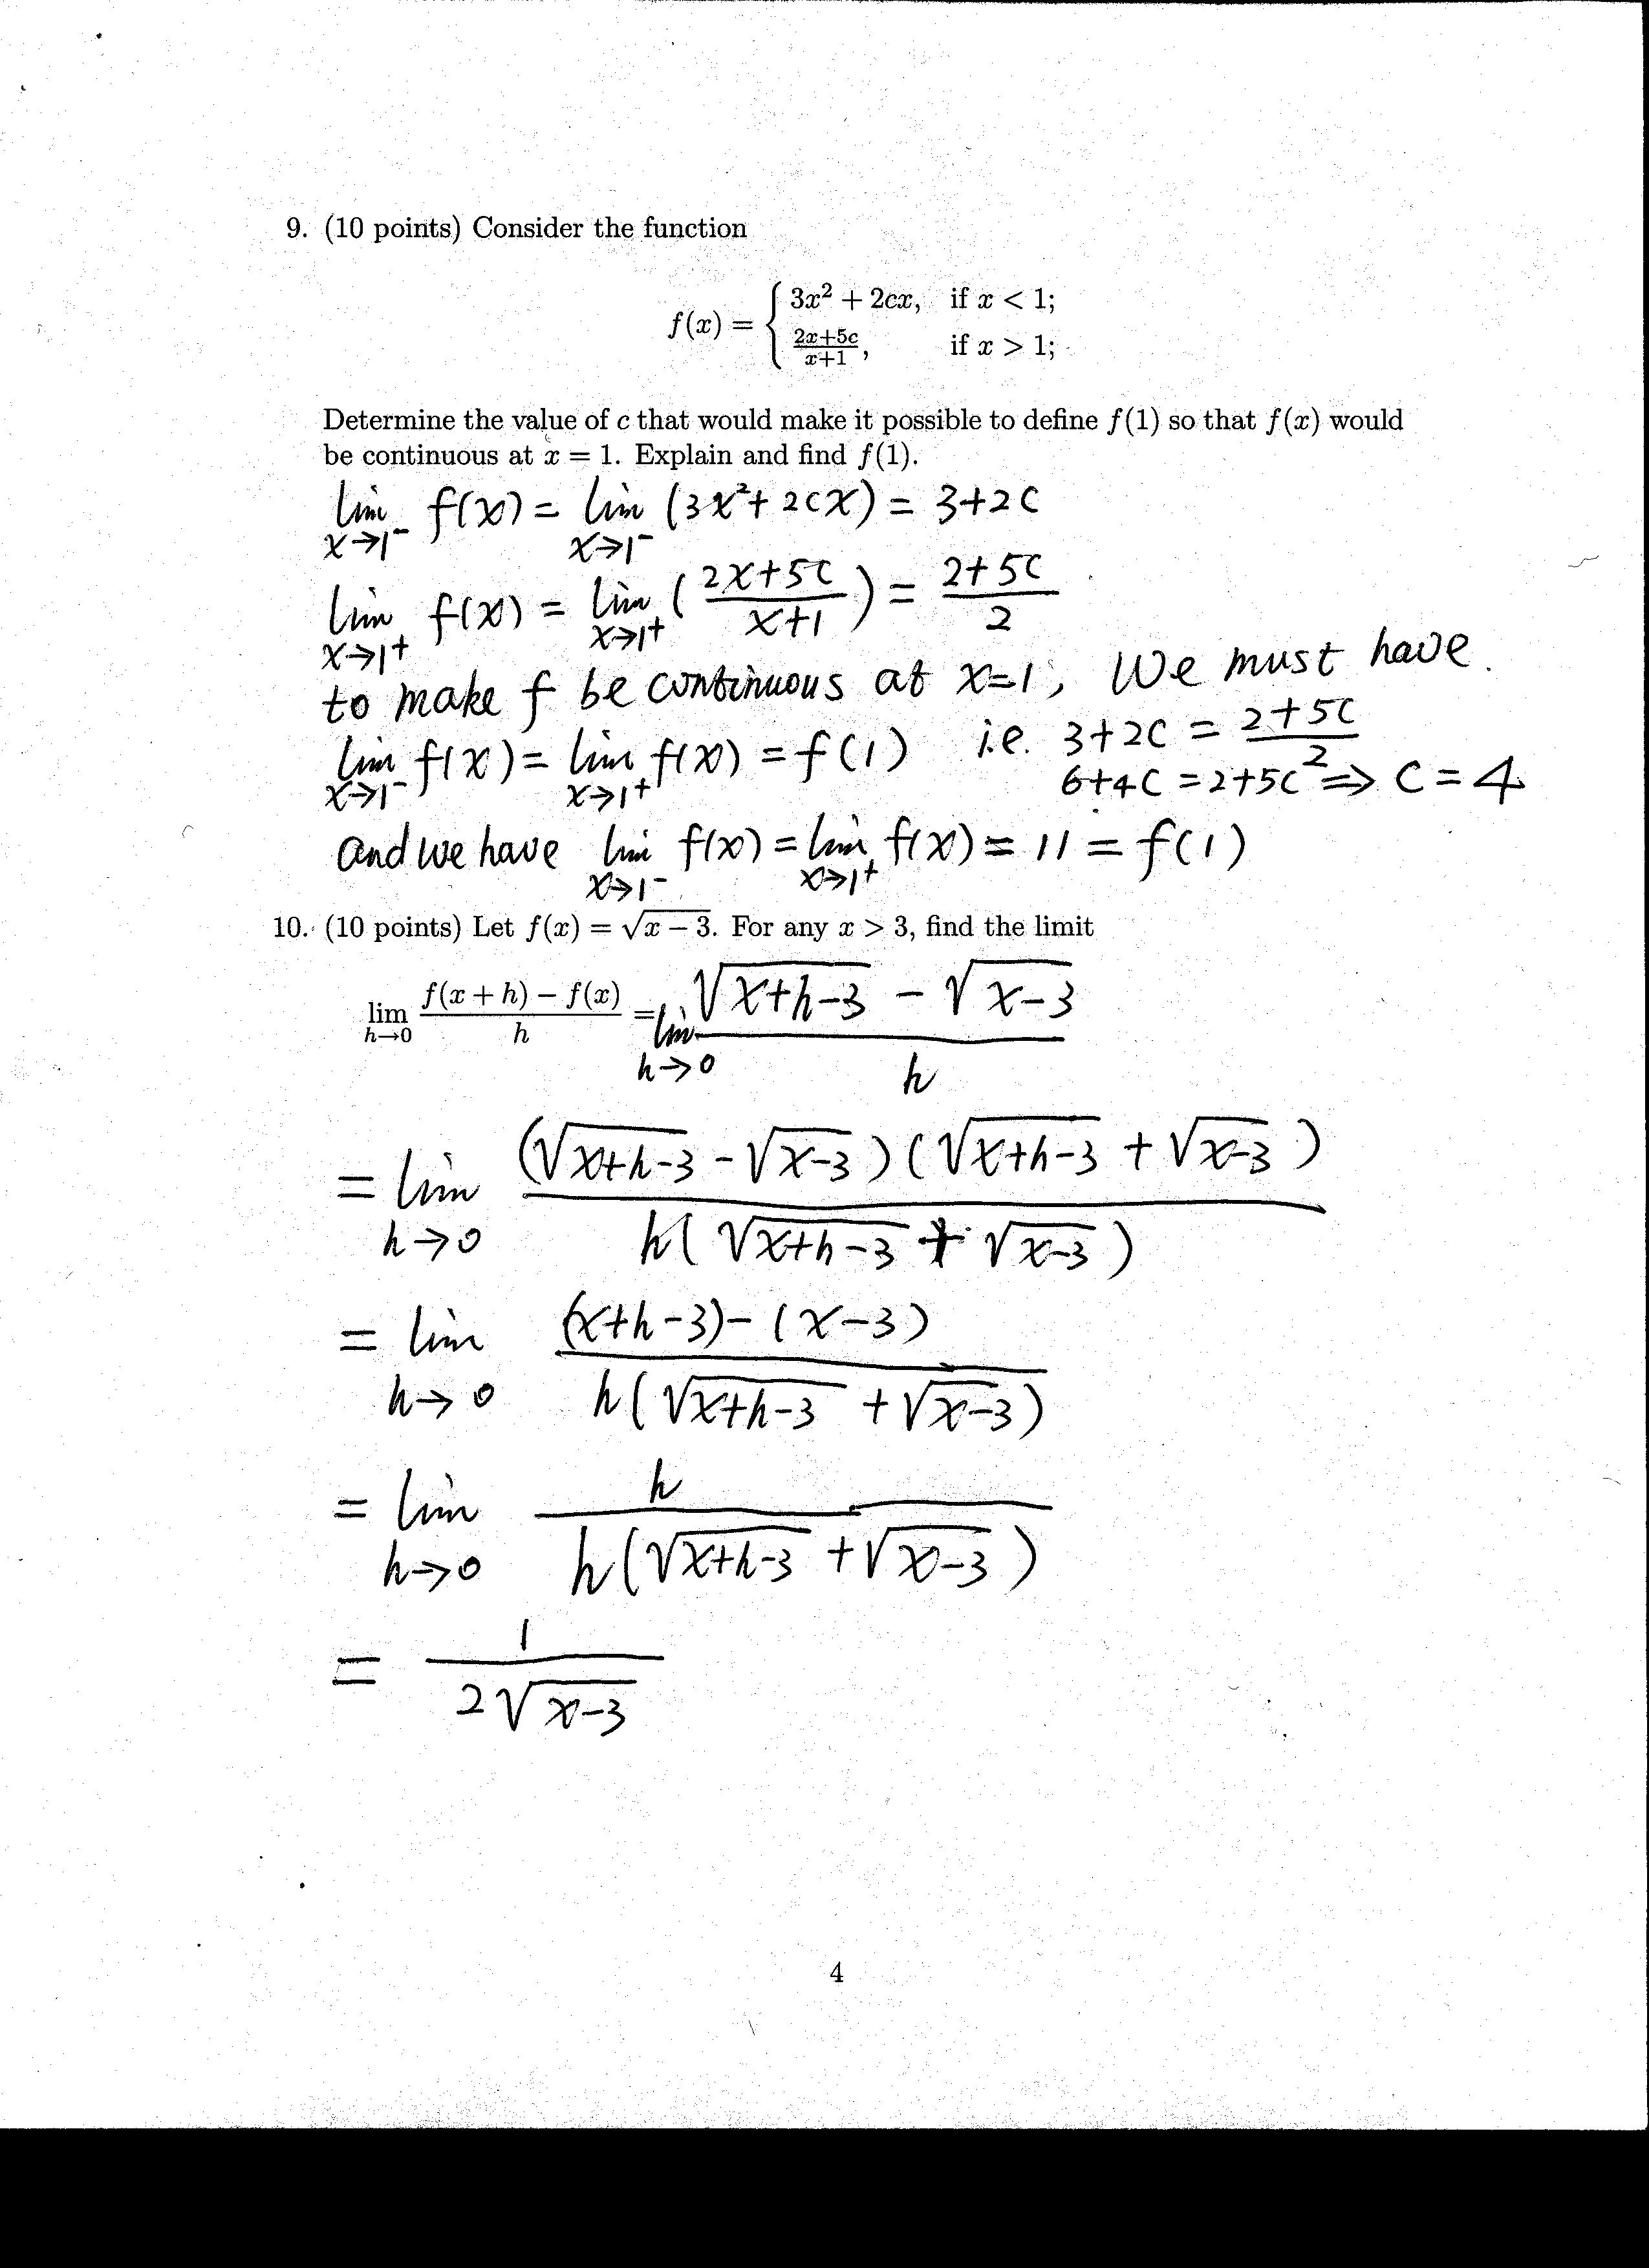 9. (10 points) Consider the function
f(x) = { 3x² + 2cx, if x < 1;
(2x+5c)/(x+1), if x > 1;
Determine the value of c that would make it possible to define f(1) so that f(x) would
be continuous at x = 1. Explain and find f(1).
lim_{x→1⁻} f(x) = lim_{x→1⁻} (3x²+2cx) = 3+2c
lim_{x→1⁺} f(x) = lim_{x→1⁺} ((2x+5c)/(x+1)) = (2+5c)/2
to make f be continuous at x=1, we must have
lim_{x→1⁻} f(x) = lim_{x→1⁺} f(x) = f(1) i.e. 3+2c = (2+5c)/2
6+4c = 2+5c ⇒ c = 4
and we have lim_{x→1⁻} f(x) = lim_{x→1⁺} f(x) = 11 = f(1)
10. (10 points) Let f(x) = √(x − 3). For any x > 3, find the limit
lim_{h→0} (f(x + h) − f(x))/h = lim_{h→0} (√(x+h−3) − √(x−3))/h
= lim_{h→0} ((√(x+h−3) − √(x−3))(√(x+h−3) + √(x−3)))/(h(√(x+h−3) + √(x−3)))
= lim_{h→0} ((x+h−3)−(x−3))/(h(√(x+h−3) + √(x−3)))
= lim_{h→0} h/(h(√(x+h−3) + √(x−3)))
= 1/(2√(x−3))
4